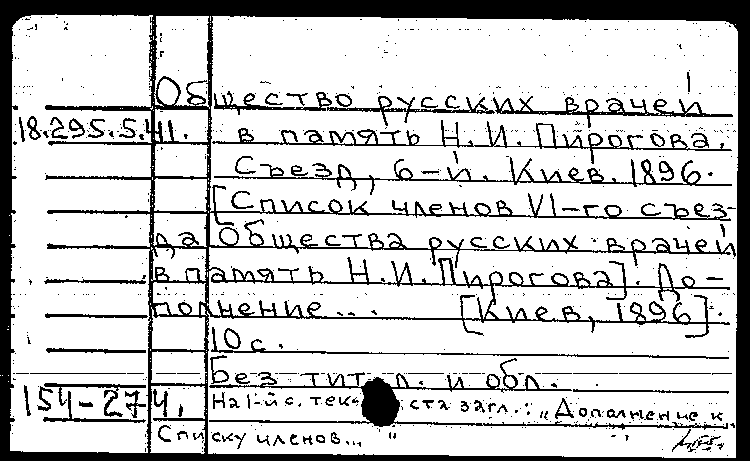 Общество русских врачей
18.295.5.41. в память Н.И. Пирогова.
Съезд, 6-й. Киев. 1896.
[Список членов VI-го съез-
да Общества русских врачей
в память Н.И. Пирогова]. До-
полнение... [Киев, 1896].
10 с.
Без тит. л. и обл.
154-274. На 1-й с. текста загл.: „Дополнение к
Списку членов..."